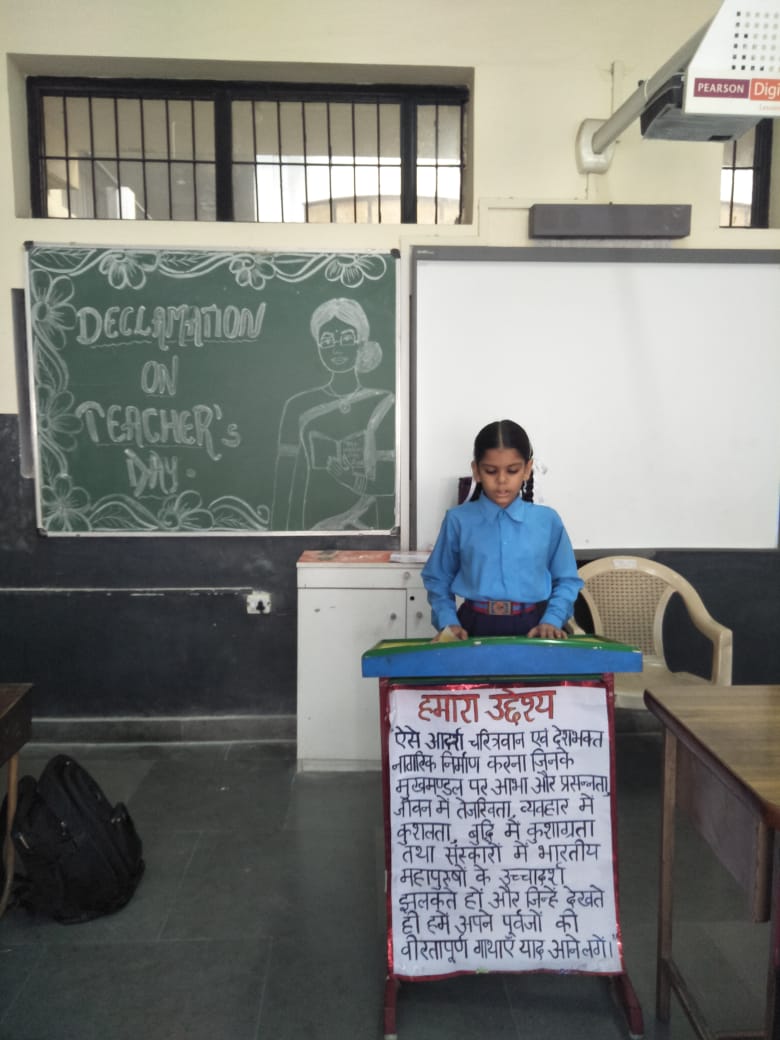 PEARSON Digi
DECLAMATION
ON
TEACHER'S
DAY.
हमारा उद्देश्य
"ऐसे आदर्श चरित्रवान एवं देशभक्त
नागरिक निर्माण करना जिनके
मुखमण्डल पर आभा और प्रसन्नता,
जीवन में तेजस्विता, व्यवहार में
कुशलता, बुद्धि में कुशाग्रता
तथा संस्कारों में भारतीय
महापुरुषों के उच्चादर्श
झलकते हों और जिन्हें देखते
ही हमें अपने पूर्वजों की
वीरतापूर्ण गाथाएँ याद आने लगें।"